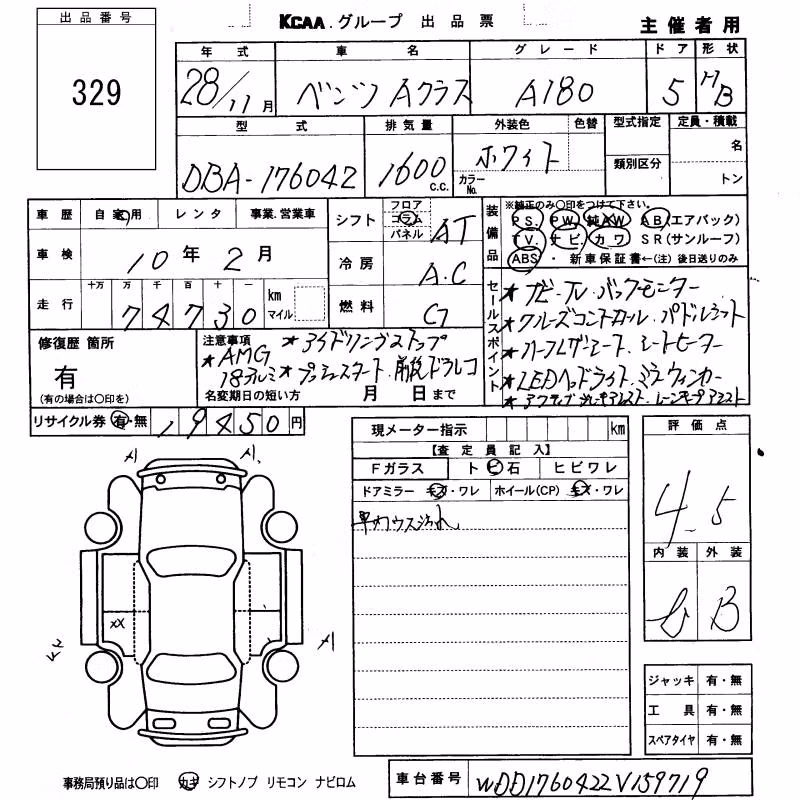 出品番号
329
KCAA.グループ 出品票
主催者用
年式 車名 グレード ドア 形状
28/11月 ベンツ Aクラス A180 5 HB
型式 排気量 外装色 色替 型式指定 定員・積載
DBA-176042 1600 c.c. ホワイト カラーNo. 類別区分 名 トン
車歴 自家用 レンタ 事業.営業車
車検 10年 2月
走行 十万 万 千 百 十 一 km マイル
74730
シフト フロア コラム パネル AT
冷房 A.C
燃料 G
装備品 ※純正のみ〇印をつけて下さい。
PS. PW. 純AW AB.(エアバック)
TV. ナビ. カワ SR(サンルーフ)
ABS ・ 新車保証書←(注)後日送りのみ
セールスポイント
★ナビ・TV・バックモニター
★クルーズコントロール・パドルシフト
★ハーフレザーシート・シートヒーター
★LEDヘッドライト・ミラウィンカー
★アクティブブレーキアシスト・レーンキープアシスト
修復歴 箇所
有
(有の場合は〇印を)
注意事項 ★アイドリングストップ
★AMG
18アルミ ★プッシュスタート・前後ドラレコ
名変期日の短い方 月 日まで
リサイクル券 有・無 19450円
現メーター指示 km
【査定員記入】
Fガラス トビ石 ヒビワレ
ドアミラー キズ・ワレ ホイール(CP) キズ・ワレ
車内ウス汚れ
評価点
4.5
内装 外装
B
A
A
XX
A
事務局預り品は〇印 カギ シフトノブ リモコン ナビロム
ジャッキ 有・無
工具 有・無
スペアタイヤ 有・無
車台番号 WDD1760422V159719